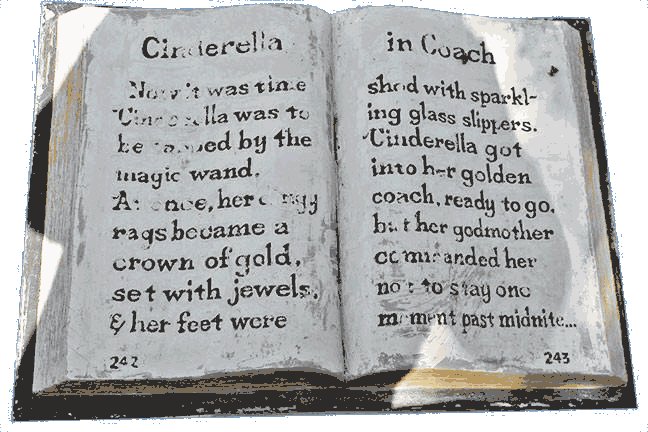 Cinderella
Now it was time
Cinderella was to
be by the
magic wand.
At once, her dingy
rags became a
crown of gold,
set with jewels,
& her feet were
242
in Coach
shod with sparkl-
ing glass slippers.
Cinderella got
into her golden
coach, ready to go,
but her godmother
commanded her
not to stay one
moment past midnite...
243